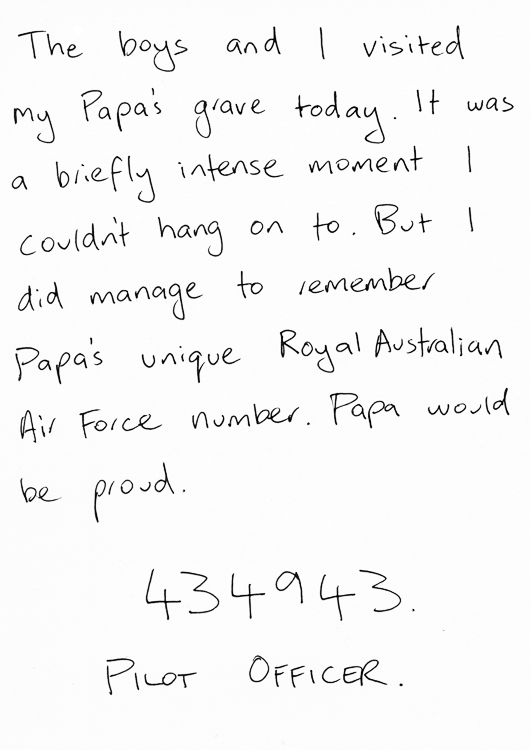 The boys and I visited
my Papa's grave today. It was
a briefly intense moment I
couldn't hang on to. But I
did manage to remember
Papa's unique Royal Australian
Air Force number. Papa would
be proud.
434943.
PILOT OFFICER.